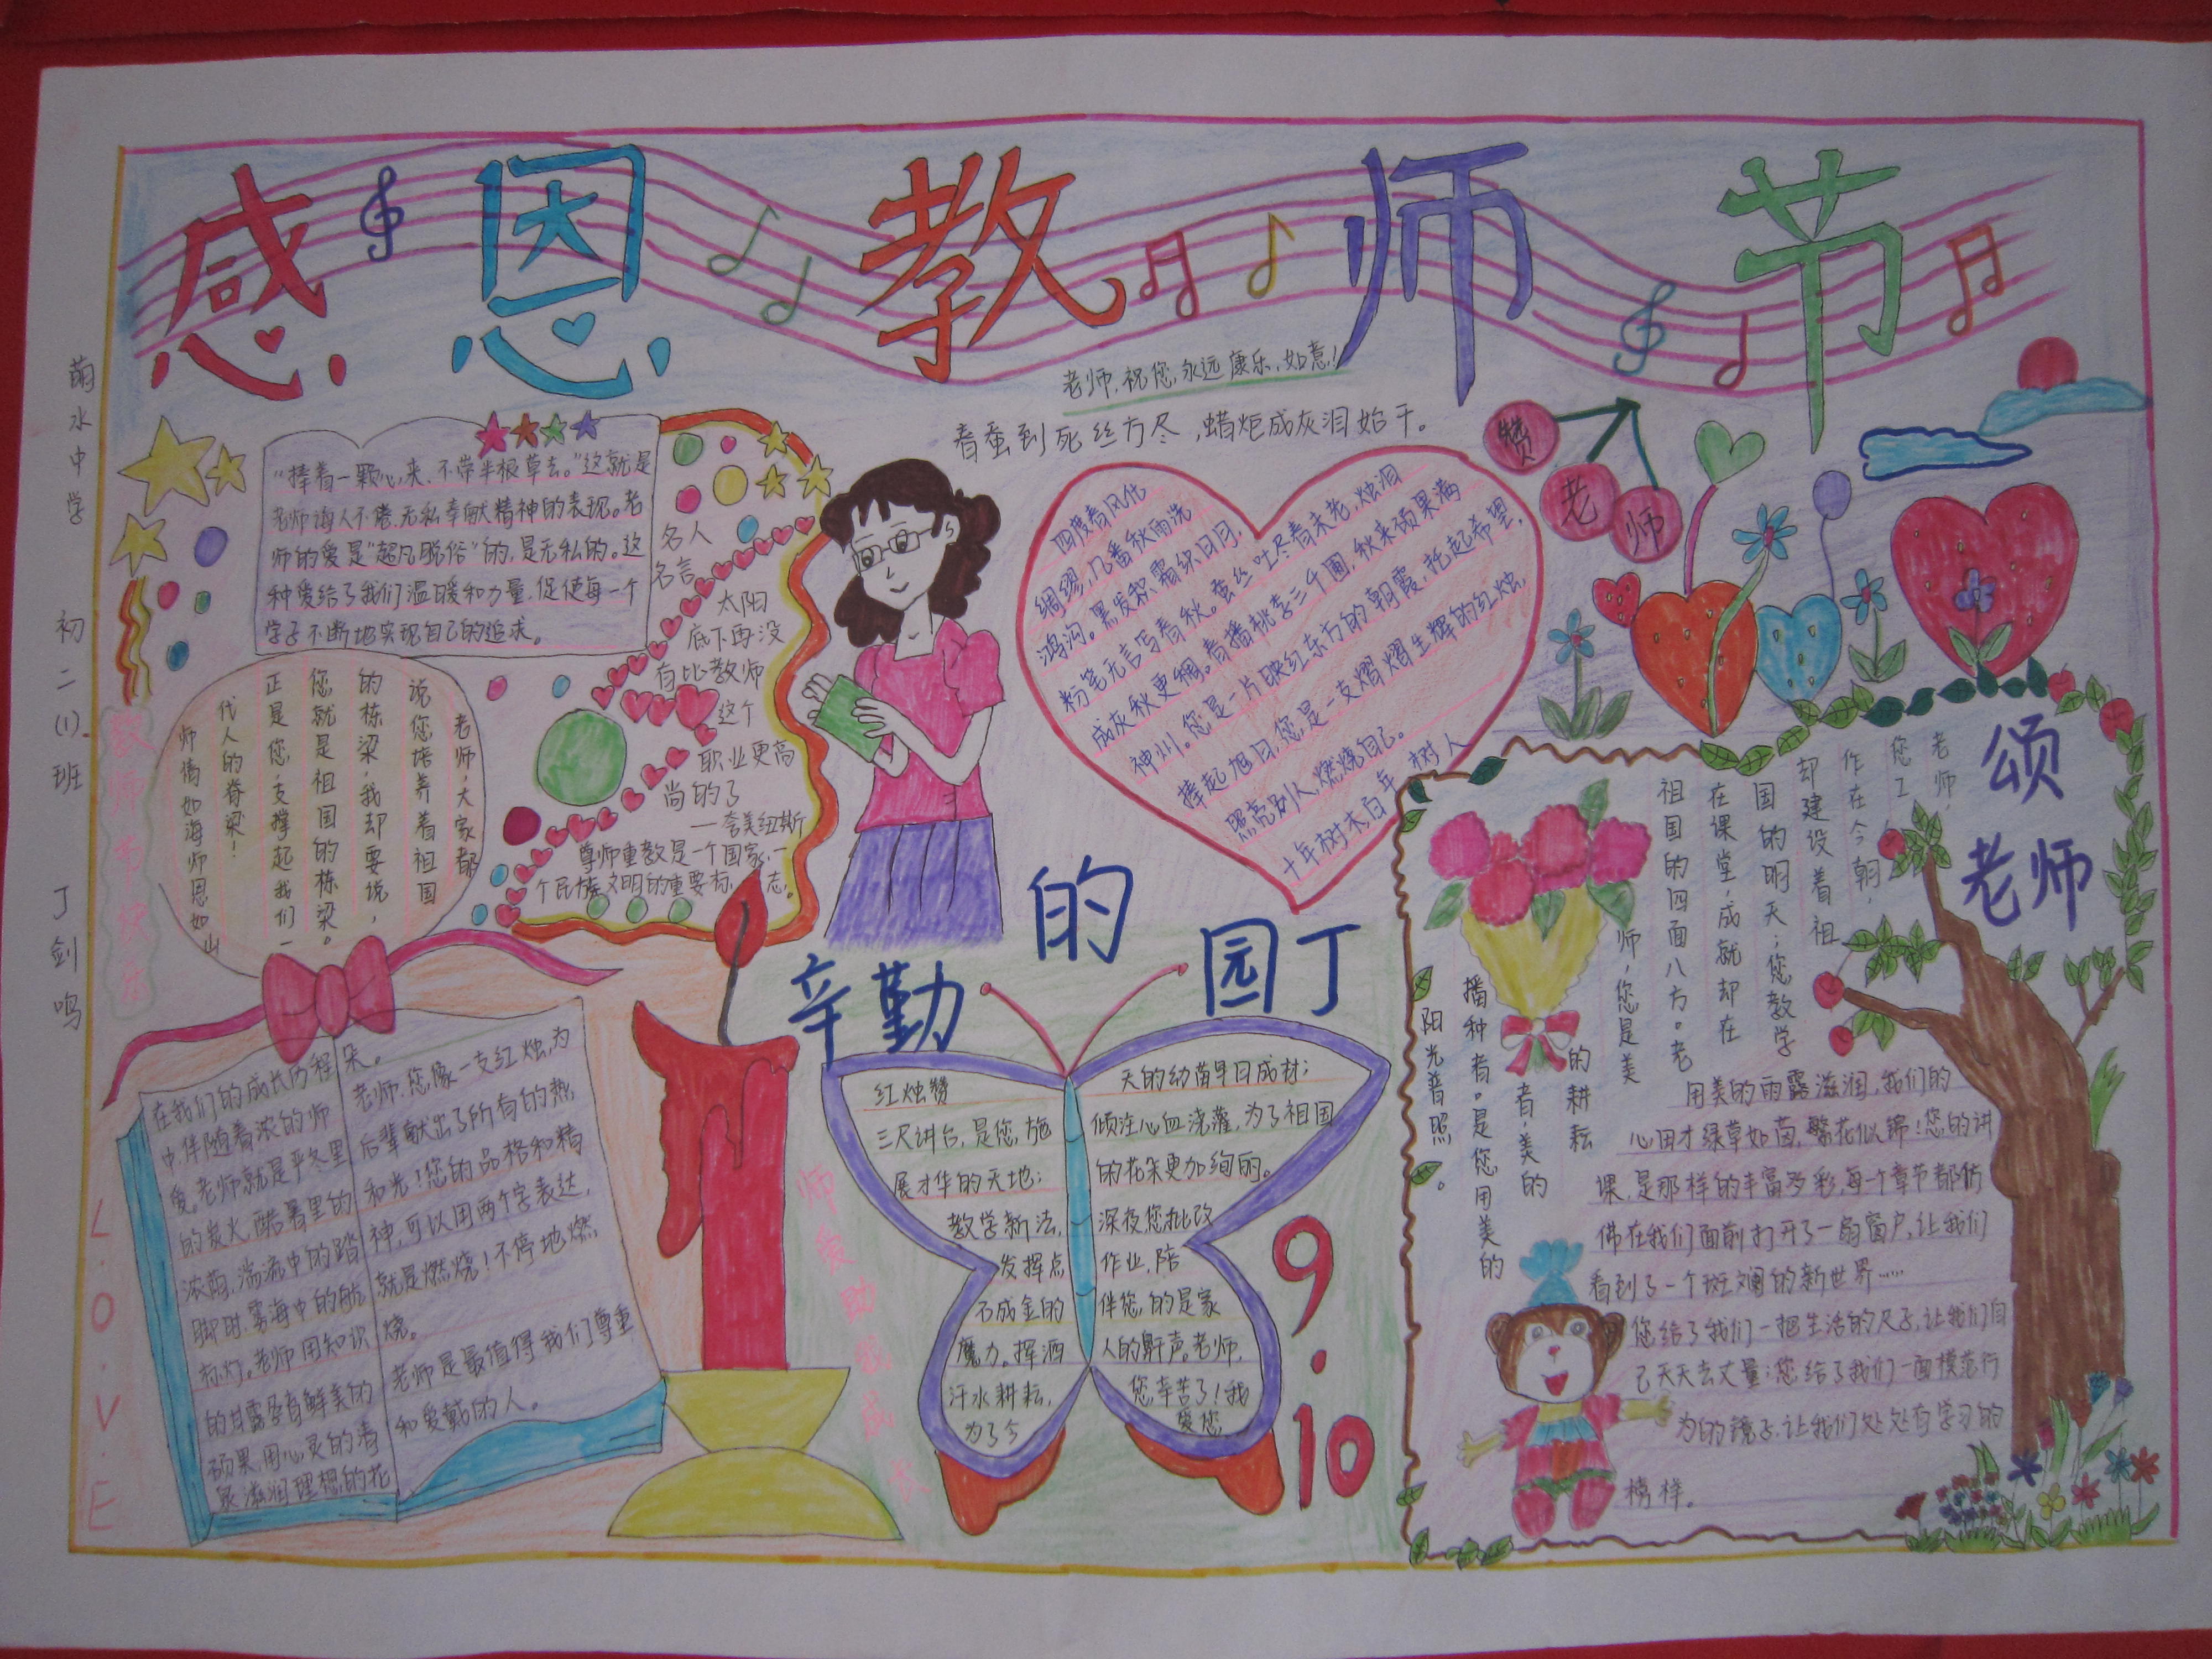 感恩教师节
萌水中学 初二(1)班 丁剑鸣
老师,祝您永远康乐,如意!
春蚕到死丝方尽,蜡炬成灰泪始干。
“捧着一颗心来,不带半根草去。”这就是
老师诲人不倦,无私奉献精神的表现。老
师的爱是“超凡脱俗”的,是无私的。这
种爱给了我们温暖和力量,促使每一个
学子不断地实现自己的追求。
名人
名言
太阳
底下再没
有比教师
这个
职业更高
尚的了
——夸美纽斯
尊师重教是一个国家,一
个民族文明的重要标志。
四度春风化
绸缪,几番秋雨洗
鸿沟。黑发积霜织日月,
粉笔无言写春秋。蚕丝吐尽春未老,烛泪
成灰秋更稠。春播桃李三千圃,秋来硕果满
神州。您是一片映红东方的朝霞,托起希望,
捧起旭日,您是一支熠熠生辉的红烛,
照亮别人,燃烧自己。
十年树木,百年树人
赞
老
师
老师,大家都
说您培养着祖国
的栋梁,我却要说,
您就是祖国的栋梁。
正是您,支撑起我们一
代人的脊梁!
师情如海师恩如山
教师节快乐
L.O.V.E
在我们的成长历程
中,伴随着浓的师
爱。老师就是严冬里
的炭火,酷暑里的
浓荫,湍流中的踏
脚时,雾海中的航
标灯。老师用知识
的甘露孕育鲜美的
硕果,用心灵的清
泉滋润理想的花
朵。
老师,您像一支红烛,为
后辈献出了所有的热
和光!您的品格和精
神,可以用两个字表达,
就是燃烧!不停地燃
烧。
老师是最值得我们尊重
和爱戴的人。
师爱助我成长
辛勤的园丁
红烛赞
三尺讲台,是您施
展才华的天地;
教学新法,
发挥点
石成金的
魔力。挥洒
汗水耕耘,
为了今
天的幼苗早日成材;
倾注心血浇灌,为了祖国
的花朵更加绚丽。
深夜您批改
作业,陪
伴您的是家
人的鼾声。老师,
您辛苦了!我
爱您
9.10
颂
老师
老师,
您工
作在今朝,
却建设着祖
国的明天;您教学
在课堂,成就却在
祖国的四面八方。老
师,您是美
的耕耘
者,美的
播种者。是您用美的
阳光普照。
用美的雨露滋润,我们的
心田才绿草如茵,繁花似锦!您的讲
课,是那样的丰富多彩,每一个章节都仿
佛在我们面前打开了一扇窗户,让我们
看到了一个斑斓的新世界……
您给了我们一把生活的尺子,让我们自
己天天去丈量;您给了我们一面模范行
为的镜子,让我们处处有学习的
榜样。